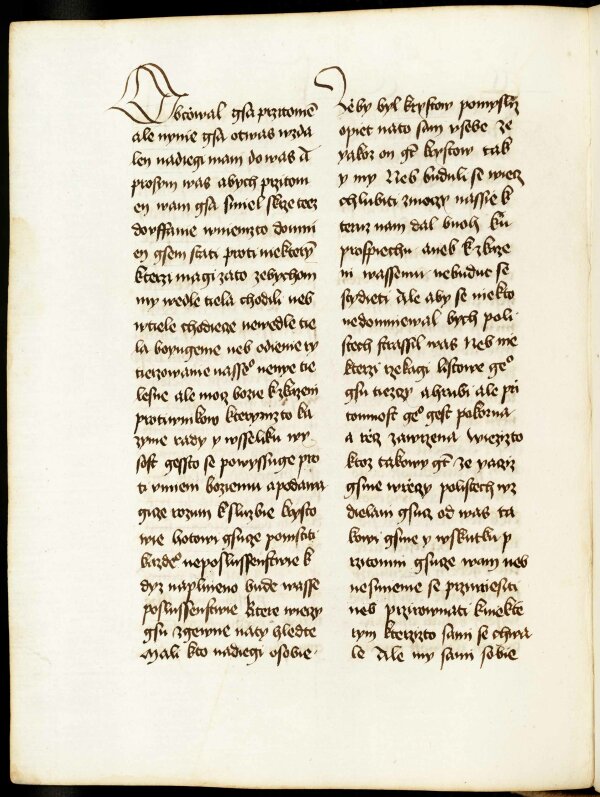 Obcowal gsa prziтomē
ale nynie gsa otwas wzda
len nadiegi mam do was A
prosym was abych przitom
en wam gsa smiel skrze teez
dovffanie wmiemzto domni
en gsem stati proti niekterym̄
kterzi magi zato zebychom
my wedle tiela chodili neb
wtiele chodiece newedle tie
la boyugeme neb odienie ry
tierzowanie nasseᵒ nenye tie
lesne ale moz bozie kzkazeni
protiwnikow kterymzto ka
zyme rady y wsseliku wy
sost gessto se powyssuge pro
ti vmieni boziemu a podawa
gice rozum k sluzbie krysto
wie hotowi gsuce pomstiti
kazdeᵒ neposlussenstwie k
dyz naplneno bude wasse
poslussenstwie Ktere wiezy
gsu zgewne naty hledte
Mali kto nadiegi osobie
Zeby byl krystow pomysliz
opiet nato sam vsebe ze
yakoz on gt krystow tak
y my Neb buduli se wiecz
chlubiti zmoczy nassie k
teruz nam dal buoh ku
prospiechu aneb k zkaze
ni wassemu nebudut se
stydieti Ale aby se niekto
nedomniewal bych poli
stech strassil was Neb nie
kterzi rzekagi listowe geᵒ
gsu tiezcy a hrubi ale pri
tomnost geᵒ gest pokorna
a rzecz zawrzena Wiezto
ktoz takowy gt ze yaciz
gsme wrzeczy polistech wz
dielem gsucz od was ta
kowi gsme y wskutku p
rzitomni gsucze wam neb
nesmieme se prziwiesiti
neb przirownati kniekte
rym kterzito sami se chwa
le Ale my sami sobie